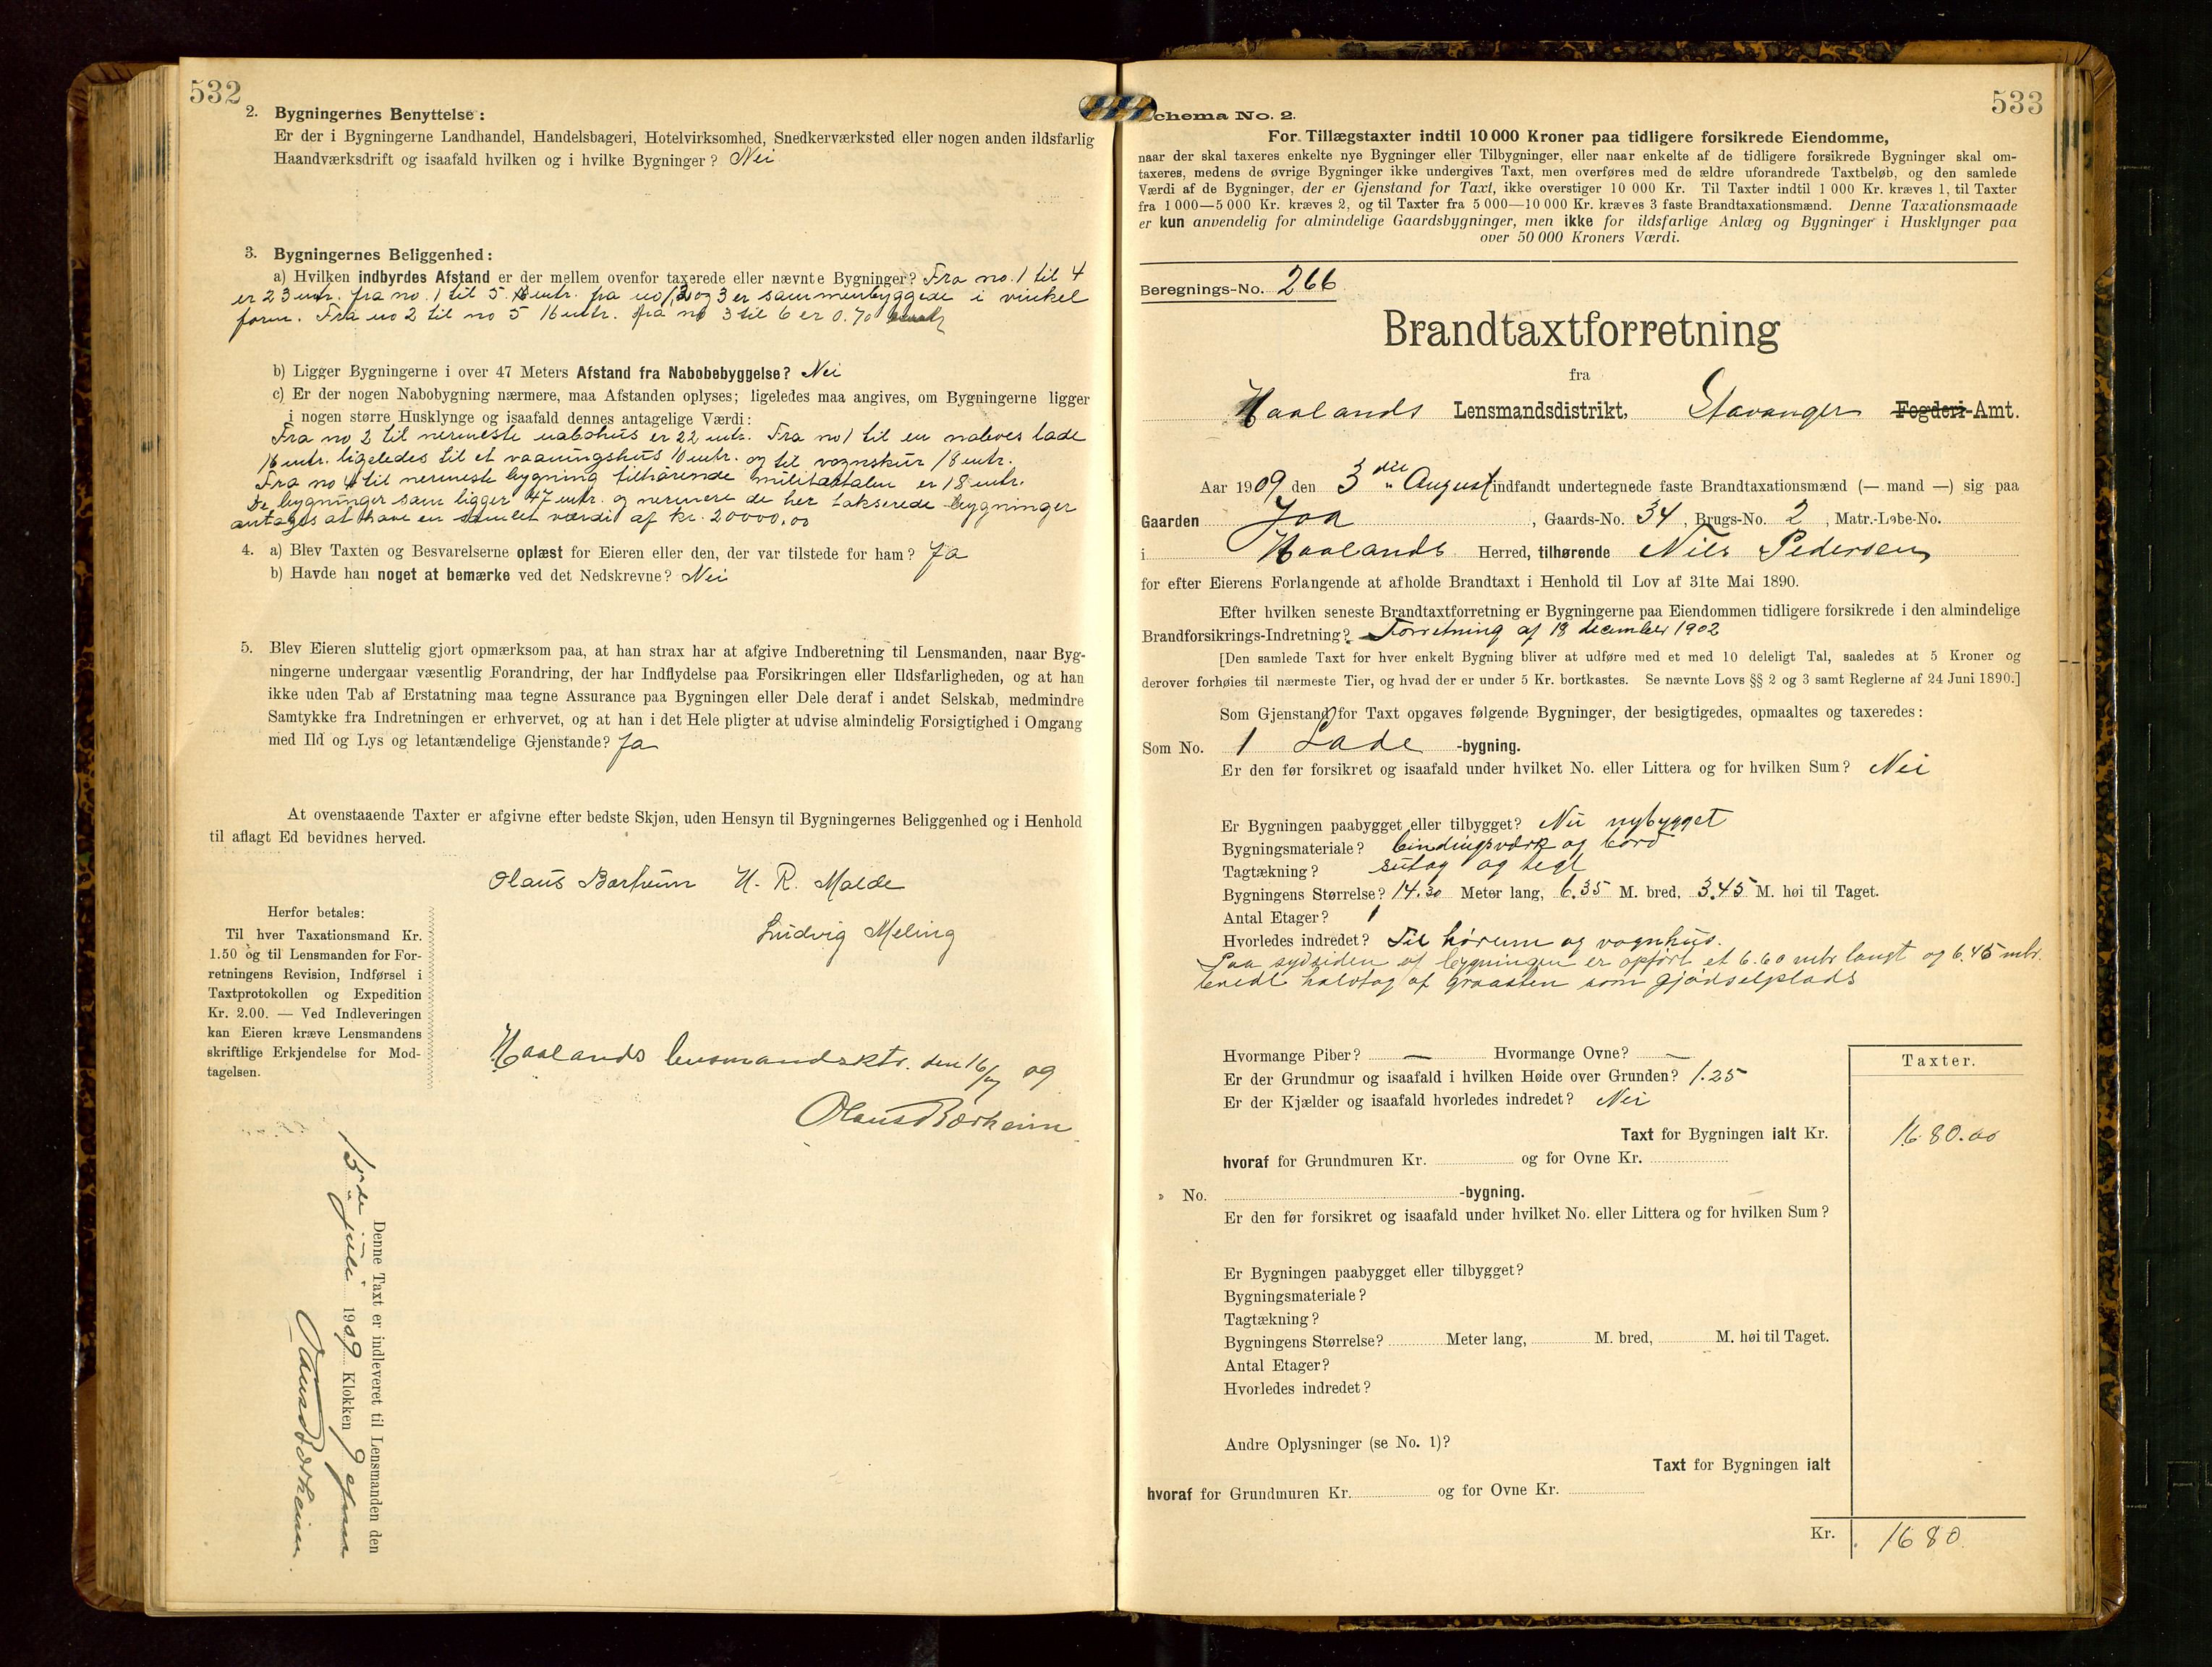 532
2. Bygningernes Benyttelse:
Er der i Bygningerne Landhandel, Handelsbageri, Hotelvirksomhed, Snedkerværksted eller nogen anden ildsfarlig
Haandværksdrift og isaafald hvilken og i hvilke Bygninger? Nei
3. Bygningernes Beliggenhed:
a) Hvilken indbyrdes Afstand er der mellem ovenfor taxerede eller nævnte Bygninger? Fra no. 1 til 4
er 23 mtr. fra no. 1 til 5. mtr. fra no 1, 2 og 3 er sammenbyggede i vinkel
form. Fra no 2 til no 5 16 mtr. fra no 3 til 6 er 0.70
b) Ligger Bygningerne i over 47 Meters Afstand fra Nabobebyggelse? Nei
c) Er der nogen Nabobygning nærmere, maa Afstanden oplyses; ligeledes maa angives, om Bygningerne ligger
i nogen større Husklynge og isaafald dennes antagelige Værdi:
Fra no 2 til nermeste nabohus er 22 mtr. Fra no 1 til en naboes lade
16 mtr. ligeledes til et vaaningshus 10 mtr. og til vognskur 18 mtr.
Fra no 4 til nermeste bygning tilhørende militætalen er 18 mtr.
De bygninger som ligger 47 mtr. og nermere de her takserede bygninger
antages at have en samlet værdi af kr. 20000,00
4. a) Blev Taxten og Besvarelserne oplæst for Eieren eller den, der var tilstede for ham? Ja
b) Havde han noget at bemærke ved det Nedskrevne? Nei
5. Blev Eieren sluttelig gjort opmærksom paa, at han strax har at afgive Indberetning til Lensmanden, naar Byg-
ningerne undergaar væsentlig Forandring, der har Indflydelse paa Forsikringen eller Ildsfarligheden, og at han
ikke uden Tab af Erstatning maa tegne Assurance paa Bygningen eller Dele deraf i andet Selskab, medmindre
Samtykke fra Indretningen er erhvervet, og at han i det Hele pligter at udvise almindelig Forsigtighed i Omgang
med Ild og Lys og letantændelige Gjenstande? Ja
At ovenstaaende Taxter er afgivne efter bedste Skjøn, uden Hensyn til Bygningernes Beliggenhed og i Henhold
til aflagt Ed bevidnes herved.
Olaus Børheim H. R. Malde
Ludvig Meling
Herfor betales:
Til hver Taxationsmand Kr.
1.50 og til Lensmanden for For-
retningens Revision, Indførsel i
Taxtprotokollen og Expedition
Kr. 2.00. — Ved Indleveringen
kan Eieren kræve Lensmandens
skriftlige Erkjendelse for Mod-
tagelsen.
Haalands lensmandsktr. den 16/7 09
Olaus Børheim
Denne Taxt er indleveret til Lensmanden den
15de juli 1909 Klokken 9
Olaus Børheim
533
chema No. 2.
For Tillægstaxter indtil 10 000 Kroner paa tidligere forsikrede Eiendomme,
naar der skal taxeres enkelte nye Bygninger eller Tilbygninger, eller naar enkelte af de tidligere forsikrede Bygninger skal om-
taxeres, medens de øvrige Bygninger ikke undergives Taxt, men overføres med de ældre uforandrede Taxtbeløb, og den samlede
Værdi af de Bygninger, der er Gjenstand for Taxt, ikke overstiger 10 000 Kr. Til Taxter indtil 1 000 Kr. kræves 1, til Taxter
fra 1 000—5 000 Kr. kræves 2, og til Taxter fra 5 000—10 000 Kr. kræves 3 faste Brandtaxationsmænd. Denne Taxationsmaade
er kun anvendelig for almindelige Gaardsbygninger, men ikke for ildsfarlige Anlæg og Bygninger i Husklynger paa
over 50 000 Kroners Værdi.
Beregnings-No. 266
Brandtaxtforretning
fra
Haalands Lensmandsdistrikt, Stavanger Fogderi-Amt.
Aar 1909 den 3die August indfandt undertegnede faste Brandtaxationsmænd (— mand —) sig paa
Gaarden Joa, Gaards-No. 34, Brugs-No. 2, Matr.-Løbe-No.
i Haalands Herred, tilhørende Nils Pedersen
for efter Eierens Forlangende at afholde Brandtaxt i Henhold til Lov af 31te Mai 1890.
Efter hvilken seneste Brandtaxtforretning er Bygningerne paa Eiendommen tidligere forsikrede i den almindelige
Brandforsikrings-Indretning? Forretning af 18 december 1902
[Den samlede Taxt for hver enkelt Bygning bliver at udføre med et med 10 deleligt Tal, saaledes at 5 Kroner og
derover forhøies til nærmeste Tier, og hvad der er under 5 Kr. bortkastes. Se nævnte Lovs §§ 2 og 3 samt Reglerne af 24 Juni 1890.]
Som Gjenstand for Taxt opgaves følgende Bygninger, der besigtigedes, opmaaltes og taxeredes:
Som No. 1 Lade -bygning.
Er den før forsikret og isaafald under hvilket No. eller Littera og for hvilken Sum? Nei
Er Bygningen paabygget eller tilbygget? Nei nybygget
Bygningsmateriale? bindingsværk og bord
Tagtækning? sutag og tegl
Bygningens Størrelse? 14.30 Meter lang, 6.35 M. bred, 3.45 M. høi til Taget.
Antal Etager? 1
Hvorledes indredet? Til hørum og vognhus.
Paa sydsiden af bygningen er opført et 6.60 mtr langt og 6.45 mtr.
bredt halvtag af graasten som gjødselplads
Hvormange Piber? — Hvormange Ovne? —
Er der Grundmur og isaafald i hvilken Høide over Grunden? 1.25
Er der Kjælder og isaafald hvorledes indredet? Nei
Taxter.
Taxt for Bygningen ialt Kr. 1680.00
hvoraf for Grundmuren Kr. og for Ovne Kr.
» No. -bygning.
Er den før forsikret og isaafald under hvilket No. eller Littera og for hvilken Sum?
Er Bygningen paabygget eller tilbygget?
Bygningsmateriale?
Tagtækning?
Bygningens Størrelse? Meter lang, M. bred, M. høi til Taget.
Antal Etager?
Hvorledes indredet?
Andre Oplysninger (se No. 1)?
Taxt for Bygningen ialt
hvoraf for Grundmuren Kr. og for Ovne Kr.
Kr. 1680.